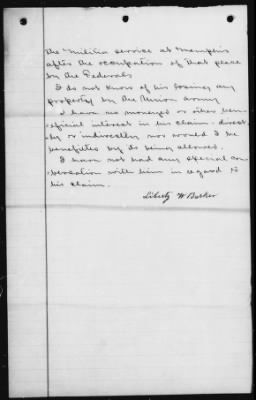 the Militia service at Memphis
after the occupation of that place
by the Federals
I do not know of his loaning any
property by the Union army
I have no moneyed or other ben-
eficial interest in his claim direct-
ly or indirectly nor would I be
benefited by its being allowed.
I have not had any special con-
versation with him in regard to
his claim.
Liberty W Barker